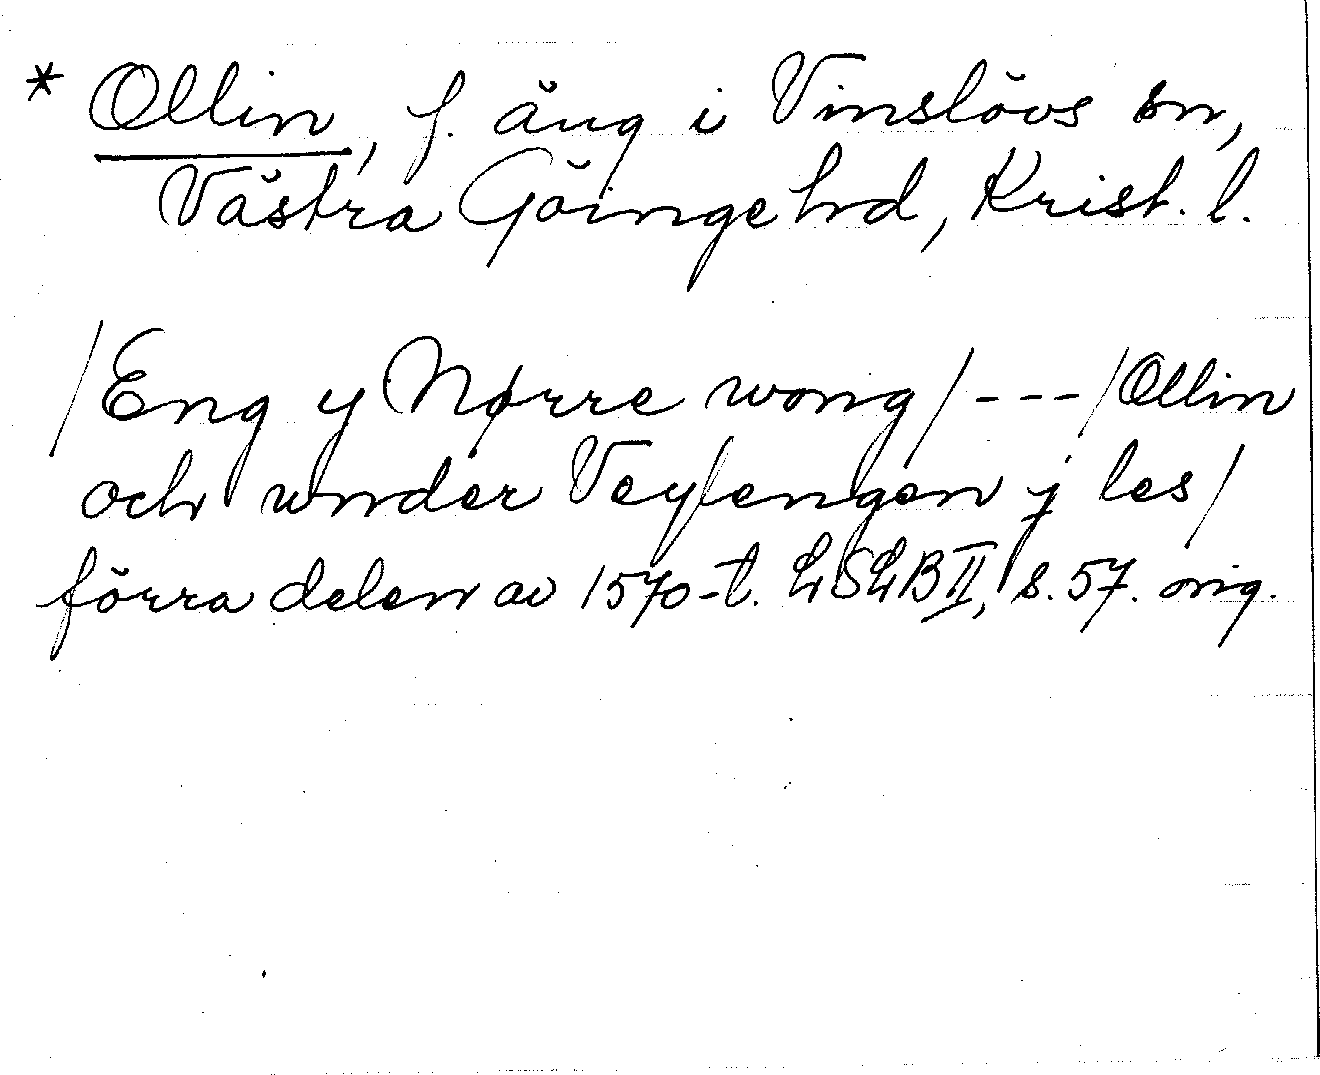 * Ollin, f. äng i Vinslövs sn,
Västra Göinge hd, Krist. l.
/Eng y Nørre wong/---/Ollin
och under Veylengen j les/
förra delen av 1570-t. LSLB II, s. 57. orig.